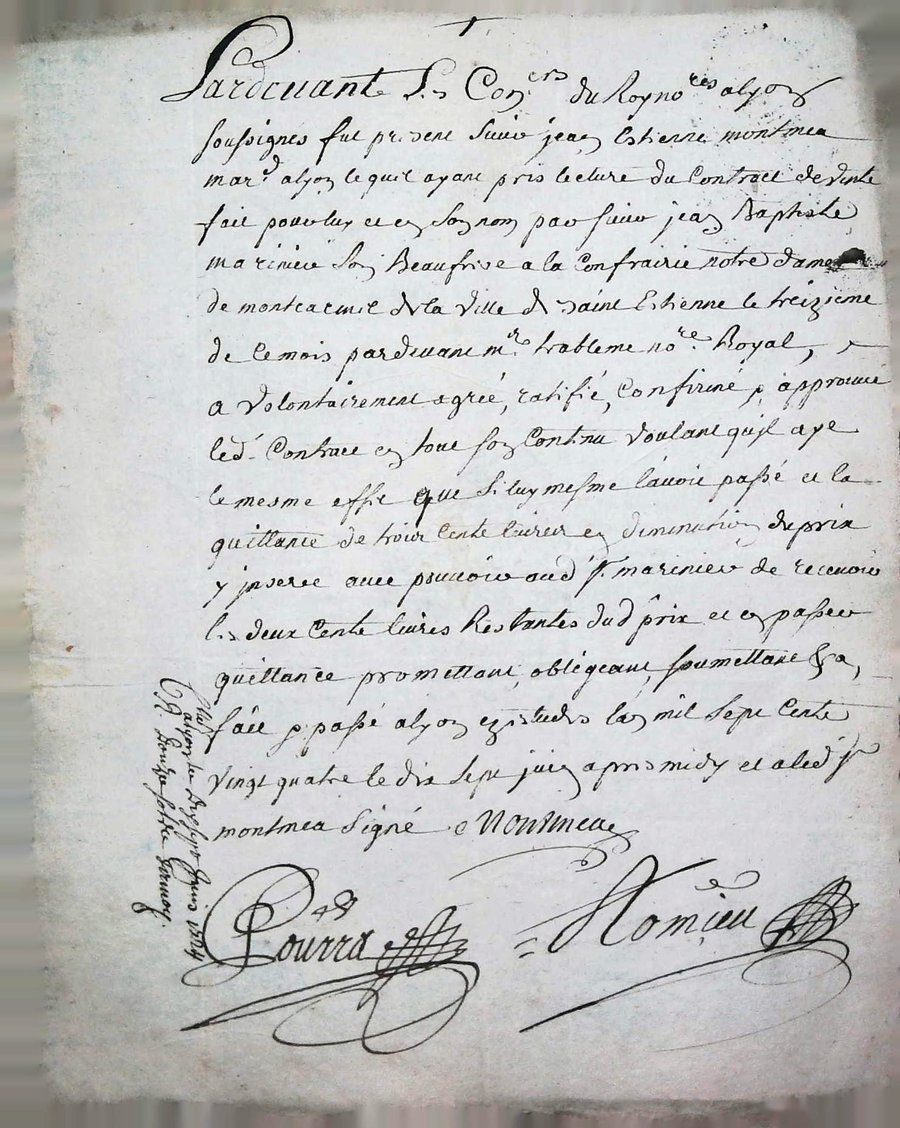 Pardevant Les Con.ers du Roy no.res alyon
soussignés fut present sieur jean Estienne montmea
mar.d alyon lequel ayant pris lecture du Contract de vente
fait pour luy et en son nom par sieur jean Baptiste
marinier son Beaufrere a la Confrairie notre dame
de montcarmel de la ville de saint Estienne le treizieme
de ce mois pardevant m.re trableme no.re Royal,
a volontairement agréé, ratifié, Confirmé & approuvé
led. Contract en tout son Contenu voulant quil aye
le mesme effet que si luy mesme l'avoit passé et la
quittance de trois cents livres en diminution du prix
y inseree avec pouvoir aud. s.r marinier de recevoir
les deux cents livres Restantes dud. prix et en passer
quittance promettant, obligeant, soumettant &a,
fait & passé alyon ez estudes lan mil sept cents
vingt quatre le dix sept juin apres midy et a led. s.r
montmea signé
Montmea
Pourra Romieu
alyon le juin 1724
R. douze sols